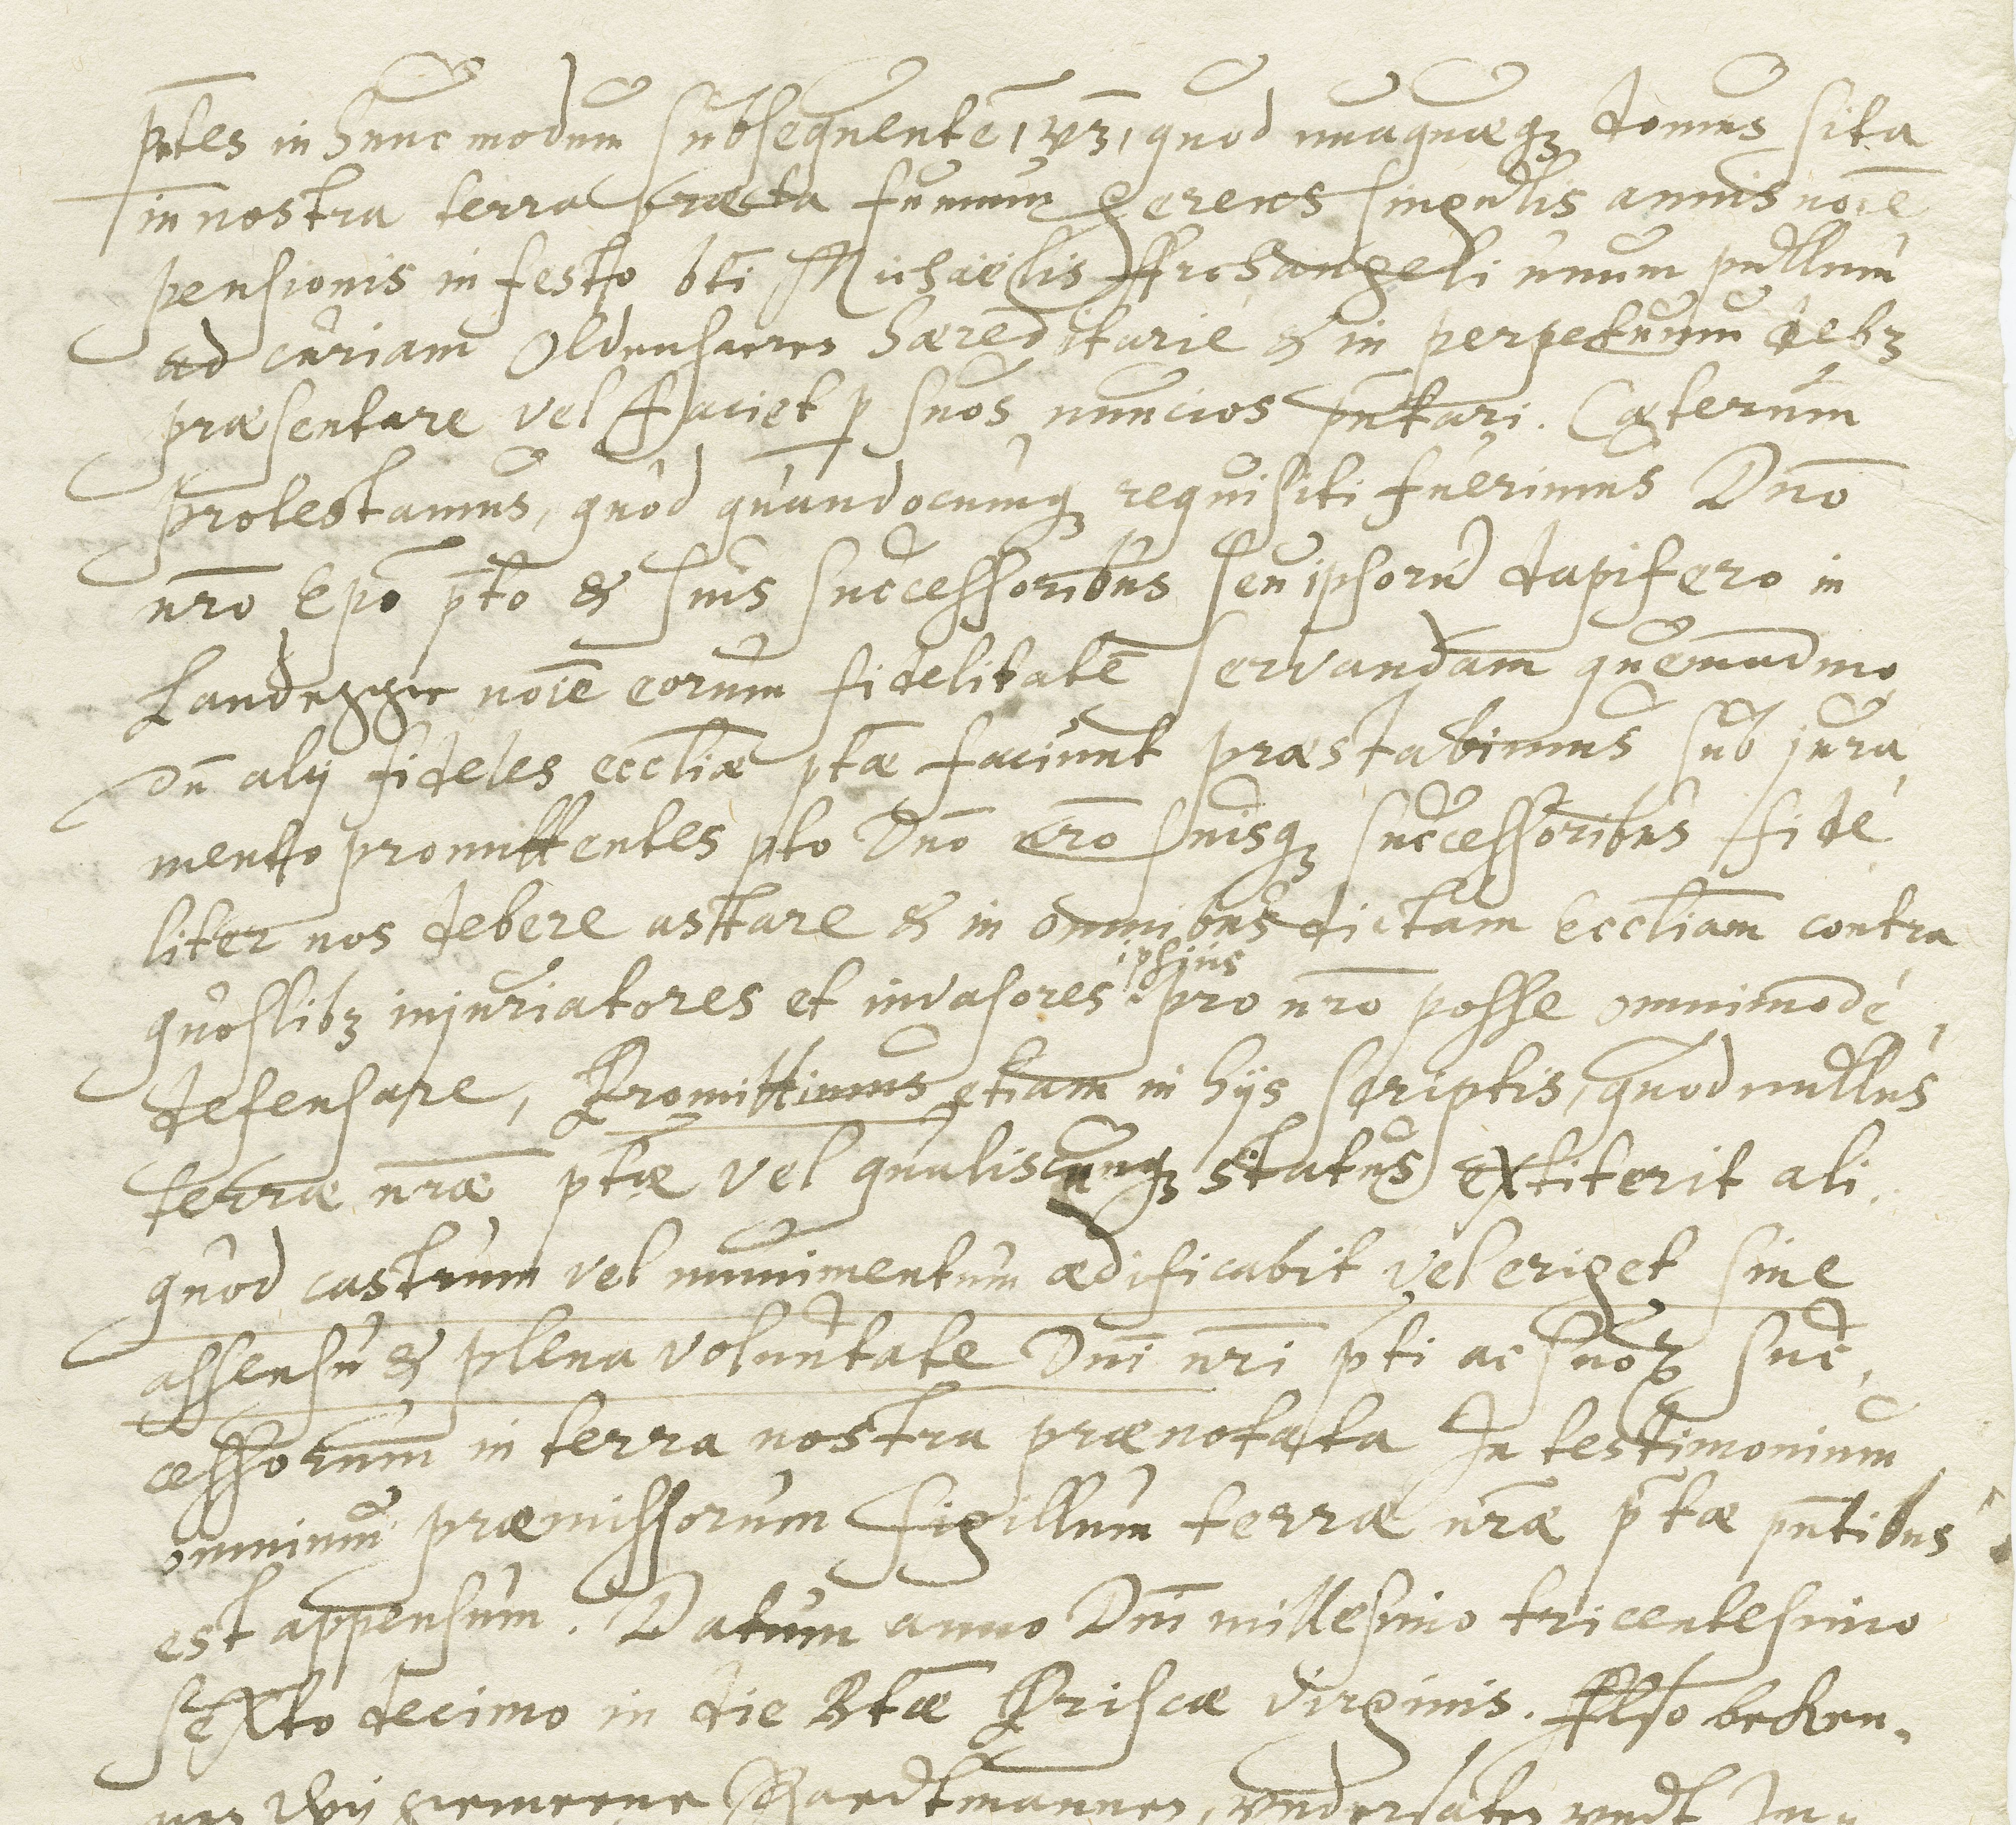 pntes in hunc modum subsequentē, vz, quod unaquæqz domus sita
in nostra terra præcta fumum gerens singulis annis noīe
pensionis in festo bti Michaëlis Archangeli unum pullum
ad curiam Oldensaeren hæreditarie & in perpetuum debz
præsentare vel faciet p suos nuncios pntari. Cæterum
Protestamus, quod quandocumqz requisiti fuerimus Dno
nro Epo pto & suis successoribus seu ipsorū dapifero in
Landegge noīe eorum fidelitatē servandam quemadmo
dū alij fideles eccliæ ptæ faciunt præstabimus sub jura
mento promittentes pto Dno nro suisqz successoribus fide
liter nos debere astare & in omnibus dictam Eccliam contra
quoslibz injuriatores et invasores ipsius pro nro posse omnimode
defensare, Promittimus etiam in hijs scriptis, quod nullus
terræ nræ ptæ vel qualiscunqz status extiterit ali
quod castrum vel munimentum ædificabit vel eriget sine
assensu & plena voluntate Dni nri pti ac suoz suc,
cessorum in terra nostra prænotata In testimonium
omnium præmissorum sigillum terræ nræ ptæ pntibus
est appensum. Datum anno Dni millesimo tricentesimo
sexto decimo in die Btæ Priscæ virginis. Also beken-
nen wij gemeene Raedtmannen, undersaten undt In-